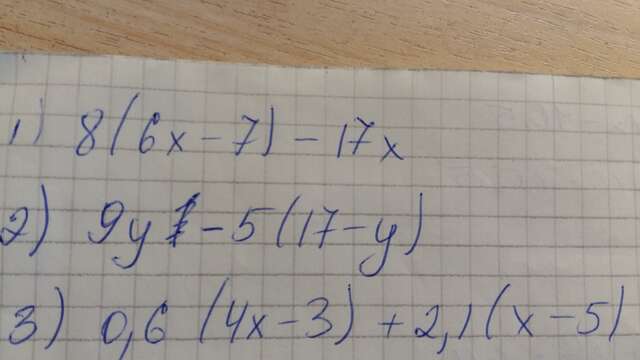 1) 8(6x-7)-17x
2) 9y-5(17-y)
3) 0,6(4x-3)+2,1(x-5)